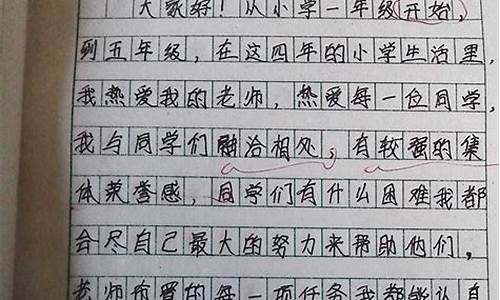 大家好！从小学一年级开始，
到五年级，在这四年的小学生活里，
我热爱我的老师，热爱每一位同学，
我与同学们融洽相处，有较强的集
体荣誉感，同学们有什么困难我都
会尽自己最大的努力来帮助他们，
老师布置的每一项任务我都能认真